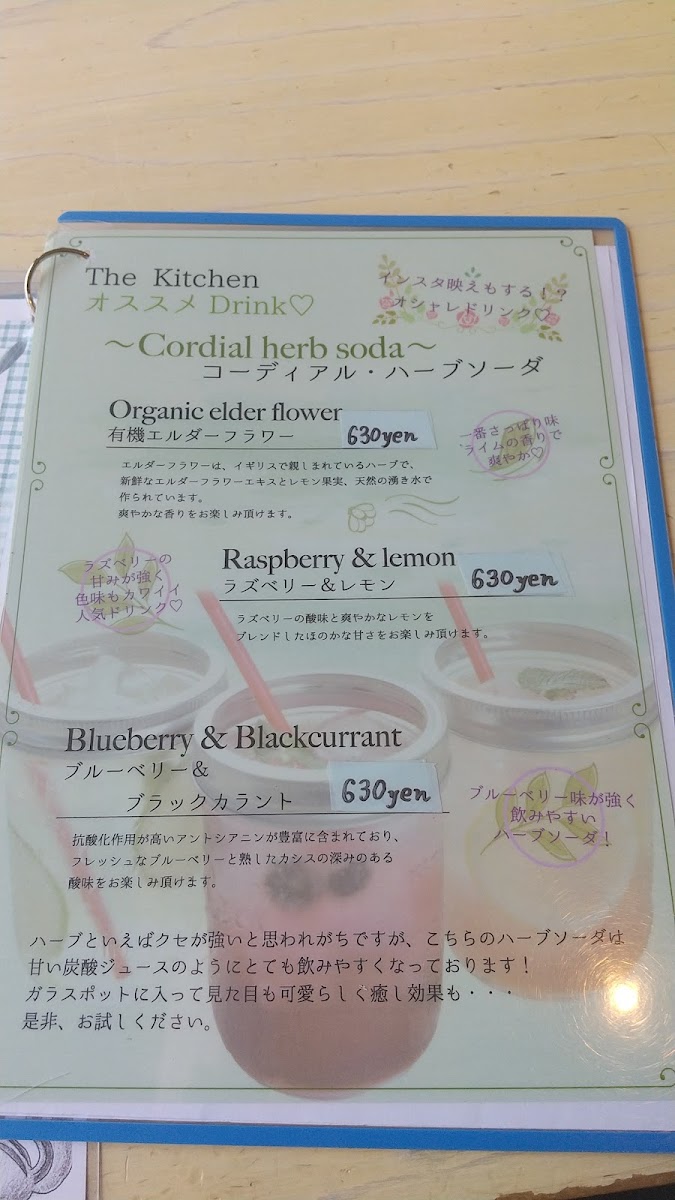 The Kitchen
オススメ Drink♡
インスタ映えもする！？
オシャレドリンク♡
～Cordial herb soda～
コーディアル・ハーブソーダ
Organic elder flower
有機エルダーフラワー
630yen
一番さっぱり味
ライムの香りで
爽やか♡
エルダーフラワーは、イギリスで親しまれているハーブで、
新鮮なエルダーフラワーエキスとレモン果実、天然の湧き水で
作られています。
爽やかな香りをお楽しみ頂けます。
ラズベリーの
甘みが強く
色味もカワイイ
人気ドリンク♡
Raspberry & lemon
ラズベリー＆レモン
630yen
ラズベリーの酸味と爽やかなレモンを
ブレンドしたほのかな甘さをお楽しみ頂けます。
Blueberry & Blackcurrant
ブルーベリー＆
ブラックカラント
630yen
ブルーベリー味が強く
飲みやすい
ハーブソーダ！
抗酸化作用が高いアントシアニンが豊富に含まれており、
フレッシュなブルーベリーと熟したカシスの深みのある
酸味をお楽しみ頂けます。
ハーブといえばクセが強いと思われがちですが、こちらのハーブソーダは
甘い炭酸ジュースのようにとても飲みやすくなっております！
ガラスポットに入って見た目も可愛らしく癒し効果も・・・
是非、お試しください。